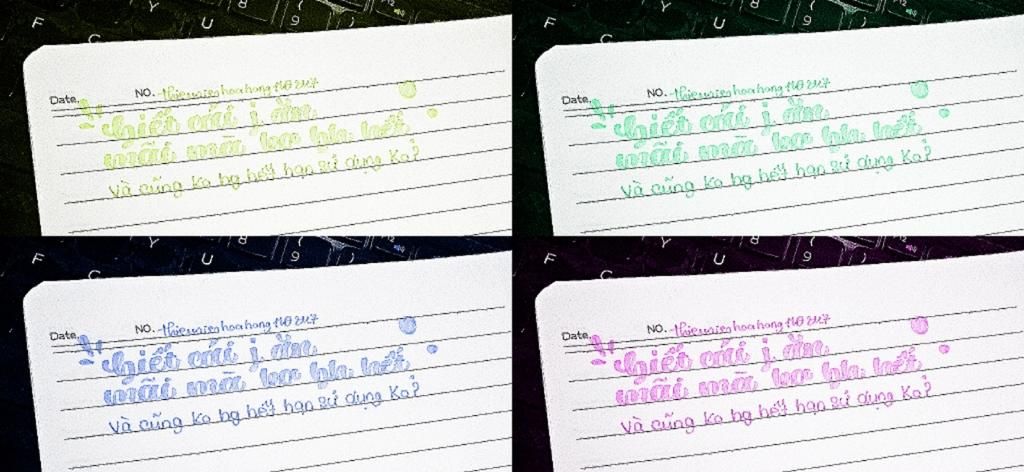 Y 8
F U 9
C
NO.
Date
biết cái j ăn
mãi mà ko bh hết
Và cũng ko bg hết hạn sử dụng ko?
Y 8
F U 9
C
NO.
Date
biết cái j ăn
mãi mà ko bh hết
Và cũng ko bg hết hạn sử dụng ko?
Y 8
F U 9
C
NO.
Date
biết cái j ăn
mãi mà ko bh hết
Và cũng ko bg hết hạn sử dụng ko?
Y 8
F U 9
C
NO.
Date
biết cái j ăn
mãi mà ko bh hết
Và cũng ko bg hết hạn sử dụng ko?